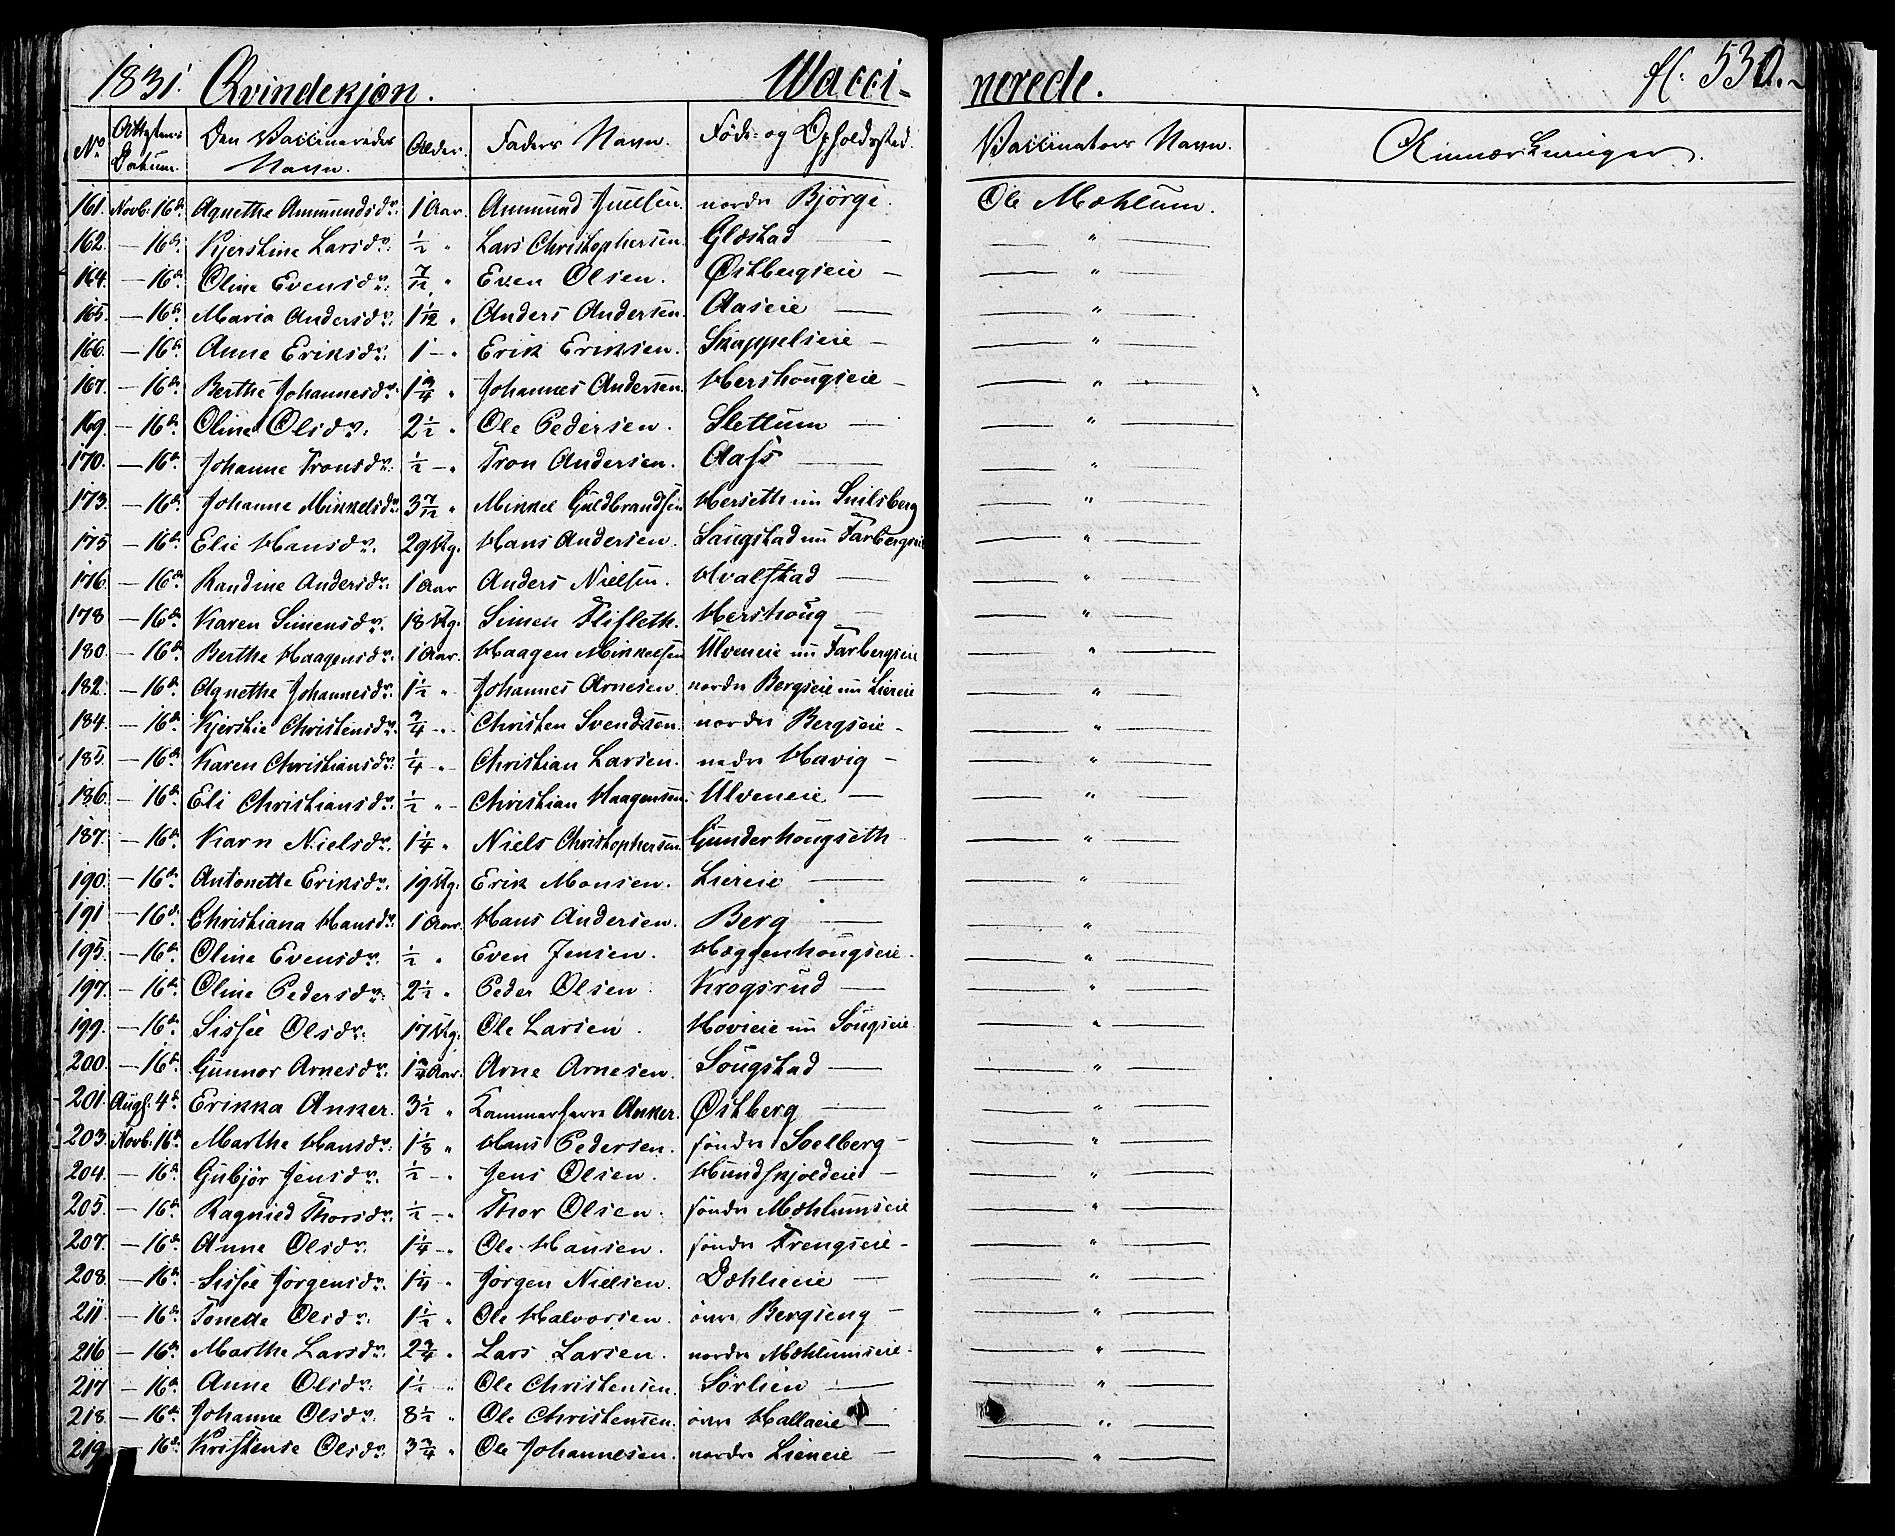 1831. Qvindekjøn. Vacci- nerede. fl. 530.
No Attestens Datum. Den Vaccineredes Navn. Alder. Faders Navn. Føde- og Opholdssted. Vaccinators Navn. Anmærkninger.
161. Novb: 16d. Agnethe Ammundsdr. 1 Aar. Ammund Juelsen. nordre Bjørge. Ole Mæhlum.
162. — 16d. Kjerstine Larsdr. ½ " Lars Christophersen. Glæstad — — " —
164. — 16d. Oline Evensdr. 7/12 " Even Olsen. Østbergseie — — " —
165. — 16d. Maria Andersdr. 1 1/12 " Anders Andersen. Aaseie — — " —
166. — 16d. Anne Eriksdr. 1 — " Erik Eriksen. Skappelseie — — " —
167. — 16d. Berthe Johannesdr. 1 3/4 " Johannes Andersen. Hershougseie — — " —
169. — 16d. Oline Olsdr. 2½ " Ole Pedersen. Slettum — — " —
170. — 16d. Johanne Tronsdr. ½ — " Tron Andersen. Aass — — " —
173. — 16d. Johanne Mikkelsdr. 3 7/12 " Mikkel Guldbrandsen Herseth nu Snilsberg — " —
175 — 16d. Elie Hansdr. 29 Ug. Hans Andersen. Saugstad nu Farbergseie — " —
176. — 16d. Randine Andersdr. 1 Aar Anders Nielsen. Hvalstad — — " —
178 — 16d. Karen Simensdr. 18 Ug. Simen Flifleth. Hershoug — — " —
180. — 16d. Berthe Haagensdr. 1 Aar. Haagen Mikkelsen Ulveneie nu Farbergseie — " —
182. — 16d. Agnethe Johannesdr. 1½ " Johannes Arnesen. nordre Bergseie nu Liereie — " —
184. — 16d. Kjerstie Christensdr. 3/4 - " Christen Svendsen. nordre Bergseie — — " —
185. — 16d. Karen Christiansdr. 1/4 - " Christian Larsen. nedre Havig — — " —
186. — 16d. Eli Christiansdr. ½ " Christian Haagensen. Ulveneie — — " —
187. — 16d. Karn Nielsdr. 1¼ " Niels Christophersen. Gunderhougseth — " —
190. — 16d. Antonette Eriksdr. 19 Ug. Erik Monsen. Liereie — — " —
191 — 16d. Christiana Hansdr. 1 Aar. Hans Andersen. Berg — — " —
195. — 16d. Oline Evensdr. ½ " Even Jensen. Hæggenhougseie. — " —
197. — 16d. Oline Pedersdr. 2½ " Peder Olsen. Krogsrud — — " —
199. — 16d. Sissee Olsdr. 17 Ug. Ole Larsen. Hovieie nu Sougseie. — " —
200. — 16d. Gunnor Arnesdr. 1 3/4 Aar. Arne Arnesen. Sougstad — — " —
201. Augs. 4d. Erikka Anker. 3½ " Kammerherre Anker. Østberg — — " —
203. Novb: 16d. Marthe Hansdr. 1 1/8 " Hans Pedersen. søndre Soelberg — — " —
204. — 16d. Gubjør Jensdr. ½ — " Jens Olsen. Hundskjoldeie — — " —
205. — 16d. Ragnied Thorsdr. ½ — " Thor Olsen. søndre Mæhlumseie — " —
207. — 16d. Anne Olsdr. 1¼ — " Ole Hansen. søndre Frengseie — — " —
208. — 16d. Sissee Jørgensdr. 1¼ " Jørgen Nielsen. Dæhlieie — — " —
211. — 16d. Tonette Olsdr. 1½ " Ole Halvorsen. øvre Bergseng — — " —
216 — 16d. Marthe Larsdr. 2 3/4 " Lars Larsen. nordre Mæhlumseie. — " —
217 — 16d. Anne Olsdr. 1½ — " Ole Christensen. Sørlien — — " —
218. — 16d. Johanne Olsdr. 8½ " Ole Christensen. øvre Hallaeie — — " —
219. — 16d. Kristense Olsdr. 3 3/4 " Ole Johannesen. nordre Lieneie — — " —